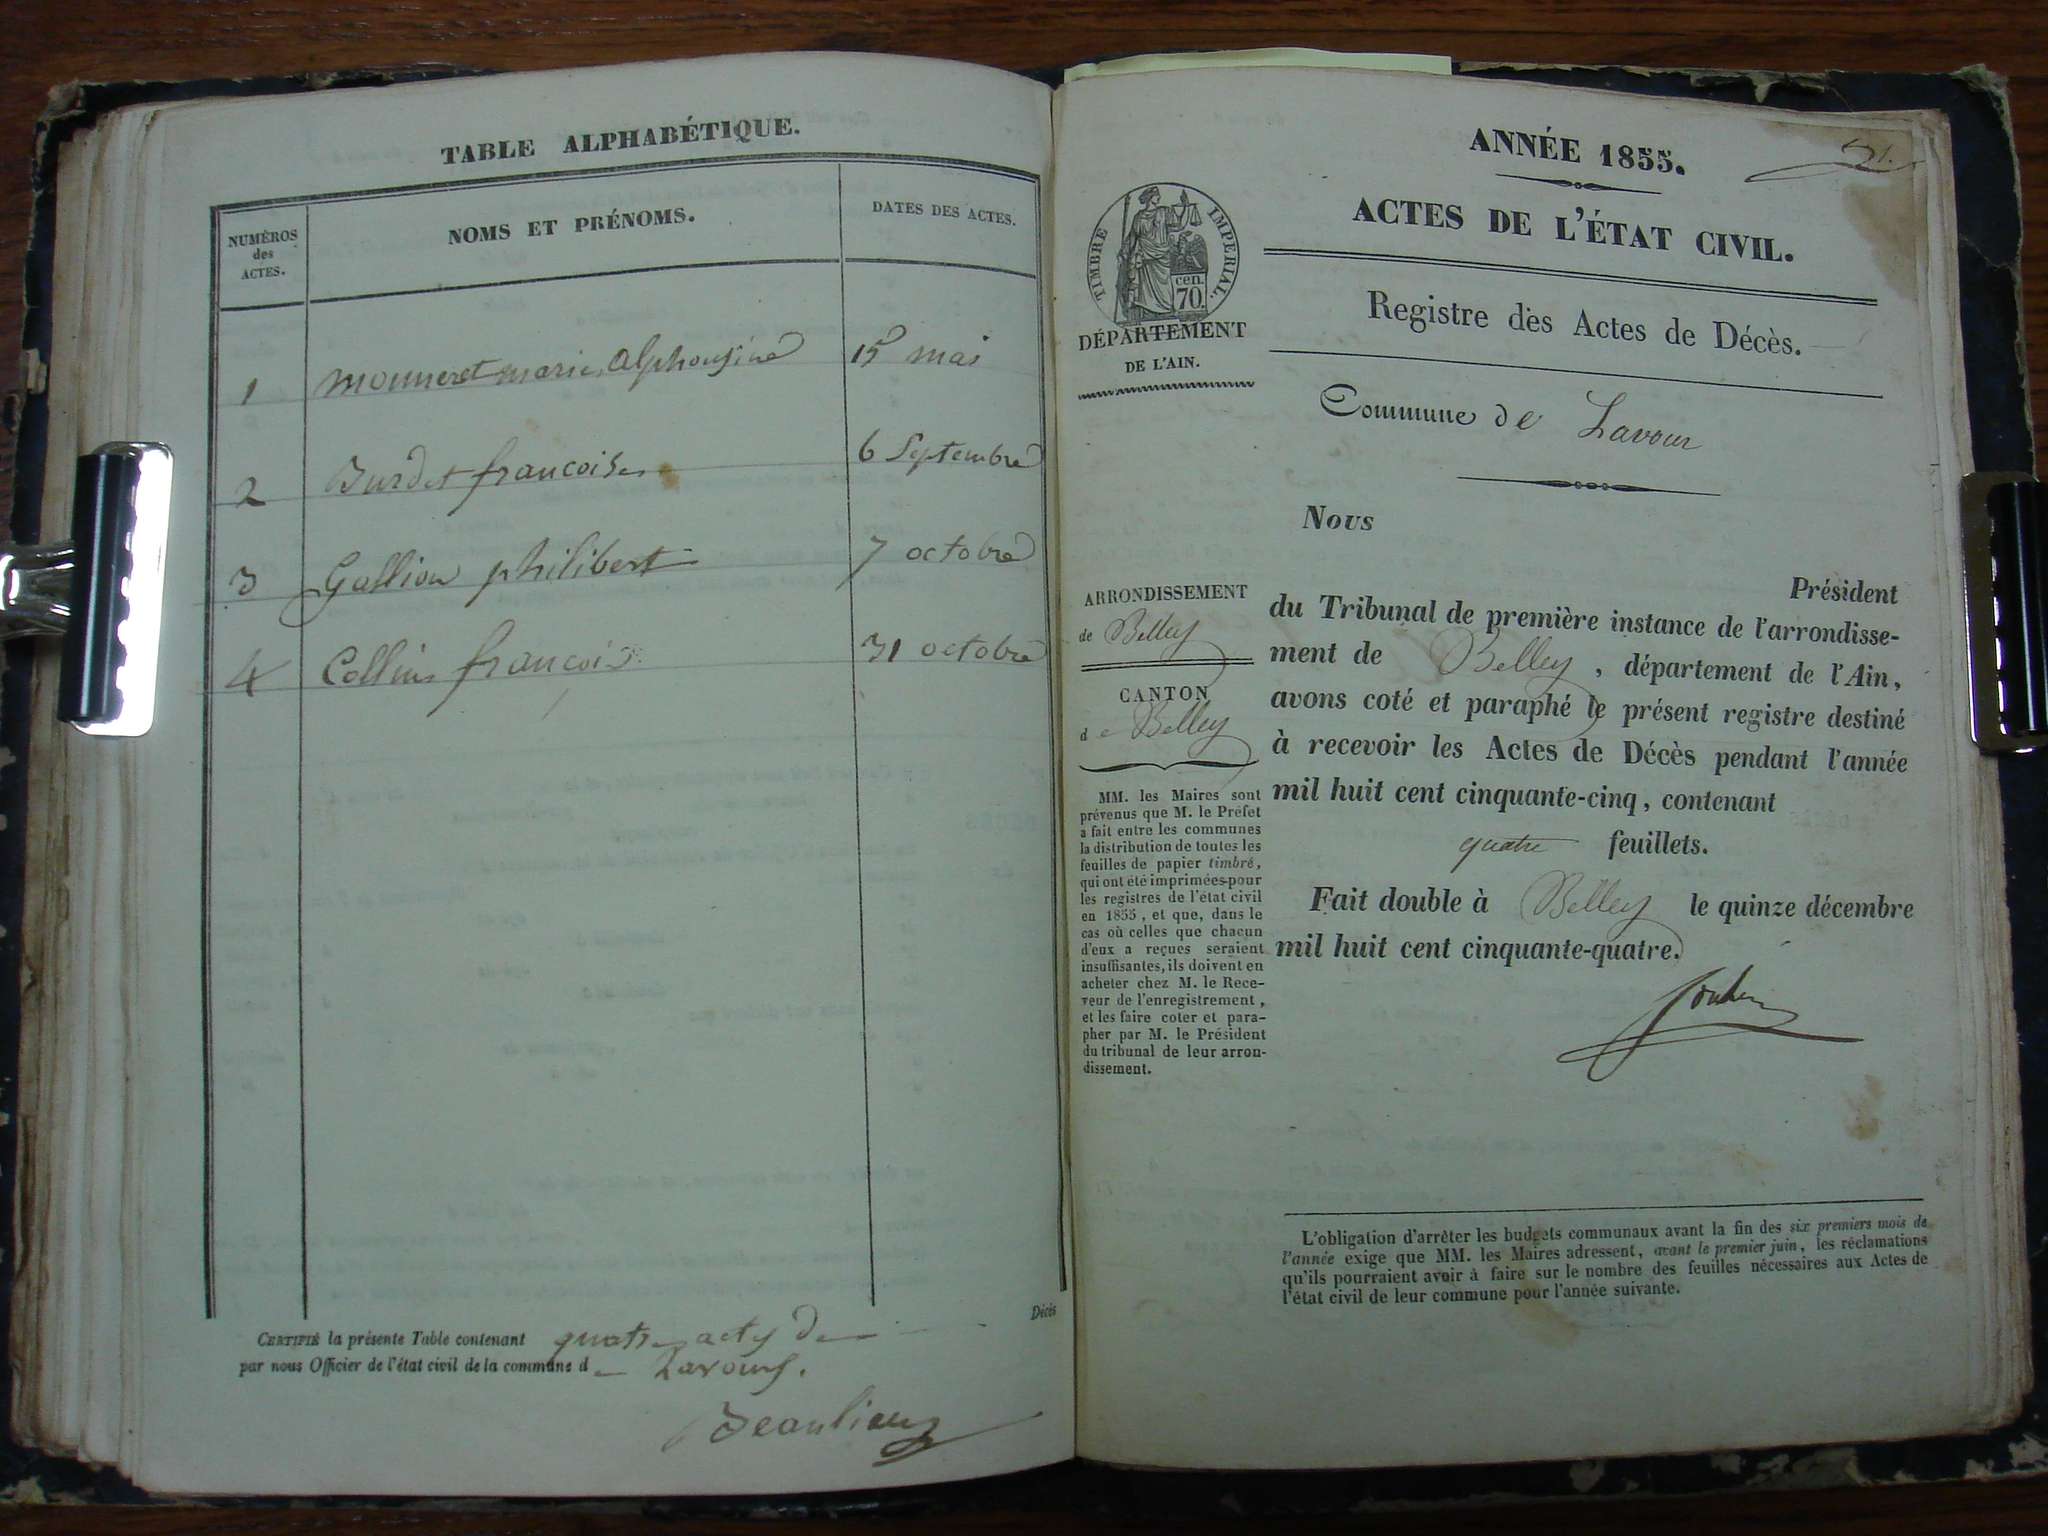 TABLE ALPHABÉTIQUE.
NUMÉROS
des
ACTES.
NOMS ET PRÉNOMS.
DATES DES ACTES.
1 Monneret marie Alphonsine 15 mai
2 Burdet francoise 6 Septembre
3 Gallion philibert 7 octobre
4 Collin francois 31 octobre
Décès
CERTIFIÉ la présente Table contenant quatre actes de
par nous Officier de l'état civil de la commune de Lavours.
Beaulieu
ANNÉE 1855.
ACTES DE L'ÉTAT CIVIL.
TIMBRE IMPERIAL.
cen.
70.
DÉPARTEMENT
DE L'AIN.
Registre des Actes de Décès.
Commune de Lavour
Nous
Président
du Tribunal de première instance de l'arrondisse-
ment de Belley, département de l'Ain,
avons coté et paraphé le présent registre destiné
à recevoir les Actes de Décès pendant l'année
mil huit cent cinquante-cinq, contenant
quatre feuillets.
Fait double à Belley le quinze décembre
mil huit cent cinquante-quatre.
ARRONDISSEMENT
de Belley
CANTON
de Belley
MM. les Maires sont
prévenus que M. le Préfet
a fait entre les communes
la distribution de toutes les
feuilles de papier timbré,
qui ont été imprimées pour
les registres de l'état civil
en 1855, et que, dans le
cas où celles que chacun
d'eux a reçues seraient
insuffisantes, ils doivent en
acheter chez M. le Rece-
veur de l'enregistrement,
et les faire coter et para-
pher par M. le Président
du tribunal de leur arron-
dissement.
L'obligation d'arrêter les budgets communaux avant la fin des six premiers mois de
l'année exige que MM. les Maires adressent, avant le premier juin, les réclamations
qu'ils pourraient avoir à faire sur le nombre des feuilles nécessaires aux Actes de
l'état civil de leur commune pour l'année suivante.